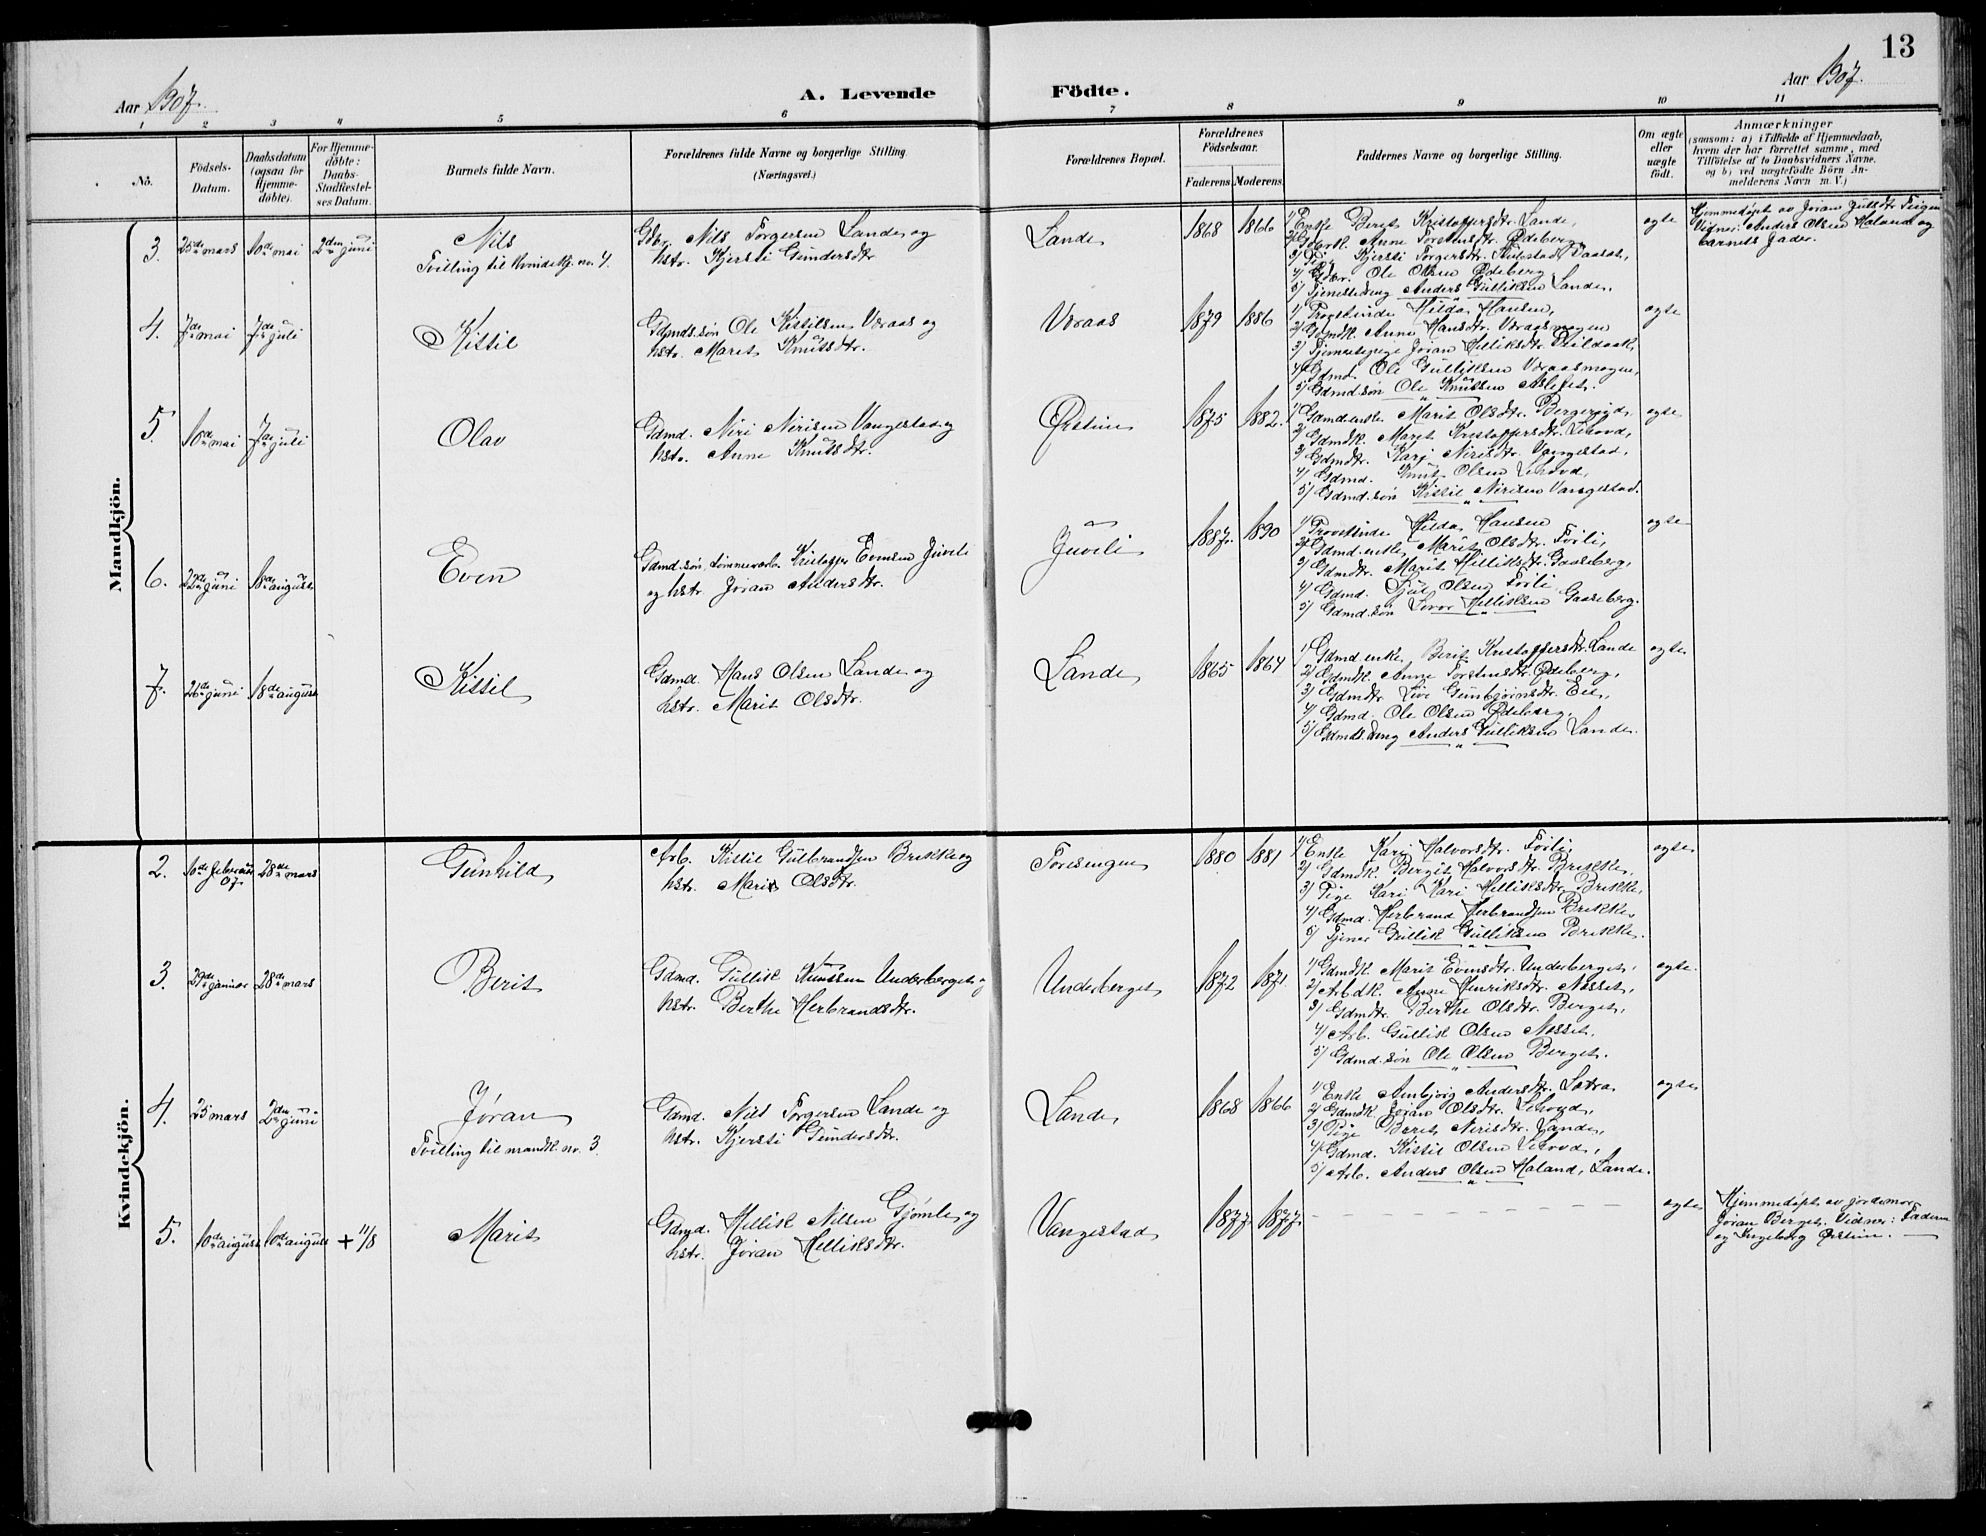 13
Aar 1907.
A. Levende Födte.
Aar 1907.
1 2 3 4 5 6 7 8 9 10 11
No.
Födsels-Datum.
Daabsdatum (ogsaa for Hjemmedöbte).
For Hjemmedöbte: Daabs-Stadfæstelses Datum.
Barnets fulde Navn.
Forældrenes fulde Navne og borgerlige Stilling.
(Næringsvei.)
Forældrenes Bopæl.
Forældrenes Födselsaar.
Faderens. Moderens.
Faddernes Navne og borgerlige Stilling.
Om ægte eller uægte födt.
Anmærkninger
(saasom: a) i Tilfælde af Hjemmedaab,
hvem der har forrettet samme, med
Tilföielse af to Daabsvidners Navne,
og b) ved uægtefödte Börn Anmelderens Navn m. V.)
Mandkjön.
3. 25de mars 10de mai 2den juni
Nils
Tvilling til kvindekj. no. 4.
Gbr. Nils Torgersen Lande og
hstr. Kjersti Gundersdtr.
Lande 1868 1866
1/ Enke Berit Kristoffersdtr. Lande,
2/ Gdmdk. Anne Torstensdtr. Ødeberg,
3/ Pige Kjersti Torgersdtr.
4/ Gbr. Ole Olsen Ødeberg
5/ Tjenestedreng Anders Gulliksen Lande.
egte
Hjemmedøpt av Jøran
Vidner: Anders Olsen Haland og
barnets fader.
4. 7de mai 7de juli
Kittil
Gdmds.søn Ole Kittilsen Væraas og
hstr. Marit Knutsdtr.
Væraas 1879 1886
1/ Provstinde Hilda Hansen,
2/ Gdmdk. Anne Hansdtr. Væraasmogen
3/ Tjenestepige Jøran Helliksdtr.
4/ Gdmd. Ole Gulliksen Væraasmogen,
5/ Gdmd.søn Ole Knutsen
egte
5. 10de mai 7de juli
Olav
Gdmd. Niri Nirisen Vangestad og
hstr. Anne Knutsdtr.
Ørstein 1875 1882.
1/ Gdmd.enke Marit Olsdtr.
2/ Gdmdk. Marit Kristoffersdtr. Lehovd,
3/ Gdmdtr. Karj Nirisdtr. Vangestad,
4/ Gdmd. Knut Olsen Lehovd,
5/ Gdmd.søn Kittil Nirisen Vangestad.
egte
6. 22de juni 18de august
Even
Gdmd.søn, tømmerarb. Kristoffer Evensen Juveli
og hstr. Jøran Andersdtr.
Juveli 1887. 1890
1/ Provstinde Hilda Hansen
2/ Gdmd.enke Marit Olsdtr. Førli,
3/ Gdmdtr. Marit Helliksdtr. Gaaseberg,
4/ Gdmd. Sjul Olsen Førli
5/ Gdmd.søn Halvor Helliksen Gaaseberg.
egte
7. 26de juni 18de august
Kittil
Gdmd. Hans Olsen Lande og
hstr. Marit Olsdtr.
Lande 1865 1864
1/ Gdmd.enke Berit Kristoffersdtr. Lande
2/ Gdmdk. Anne Torstensdtr. Ødeberg,
3/ Gdmdtr. Live Gunbjørnsdtr.
4/ Gdmd. Ole Olsen Ødeberg,
5/ Gdmds.dreng Anders Gulliksen Lande.
egte
Kvindekjön.
2. 10de februar 07. 28de mars
Gunhild
Arb. Kittil Gulbrandsen Brekke og
hstr. Marit Olsdtr.
Toresengen 1880 1881
1/ Enke Kari Halvorsdtr. Førli,
2/ Gdmdk. Bergit Halvorsdtr. Brekke,
3/ Pige Kari Kari Helliksdtr. Brekke,
4/ Gdmd. Herbrand Herbrandsen Brekke,
5/ Tjener Gullik Gulliksen Brekke.
egte
3. 29de januar 28de mars
Berit
Gdmd. Gullik Knutsen Underberget og
hstr. Berthe Herbrandsdtr.
Underberget 1872 1871.
1/ Gdmdk. Marit Evensdtr. Underberget,
2/ Arbdk. Anne Henriksdtr. Næsset,
3/ Gdmdtr. Berthe Olsdtr. Berget,
4/ Arb. Gullik Olsen Næsset,
5/ Gdmd.søn Ole Olsen Berget.
egte.
4. 25 mars 2den juni
Jøran
Tvilling til mandk. no. 3.
Gdmd. Nils Torgersen Lande og
hstr. Kjersti Gundersdtr.
Lande 1868 1866
1/ Enke Anbjørg Andersdtr. Lande
2/ Gdmdk. Jøran Olsdtr. Lehovd,
3/ Pige Berit Nirisdtr. Lande,
4/ Gdmd. Kittil Olsen Lehovd,
5/ Arb. Anders Olsen Haland, Lande.
egte
5. 10de august 10de august + 11/8
Marit
Gdmd. Hellik Nilsen Gjømle og
hstr. Jøran Helliksdtr.
Vangestad 1877. 1877.
egte
Hjemmedøpt av jordemor
Jøran Berget. Vidner: Faderen
og Ingeborg Ørstein.